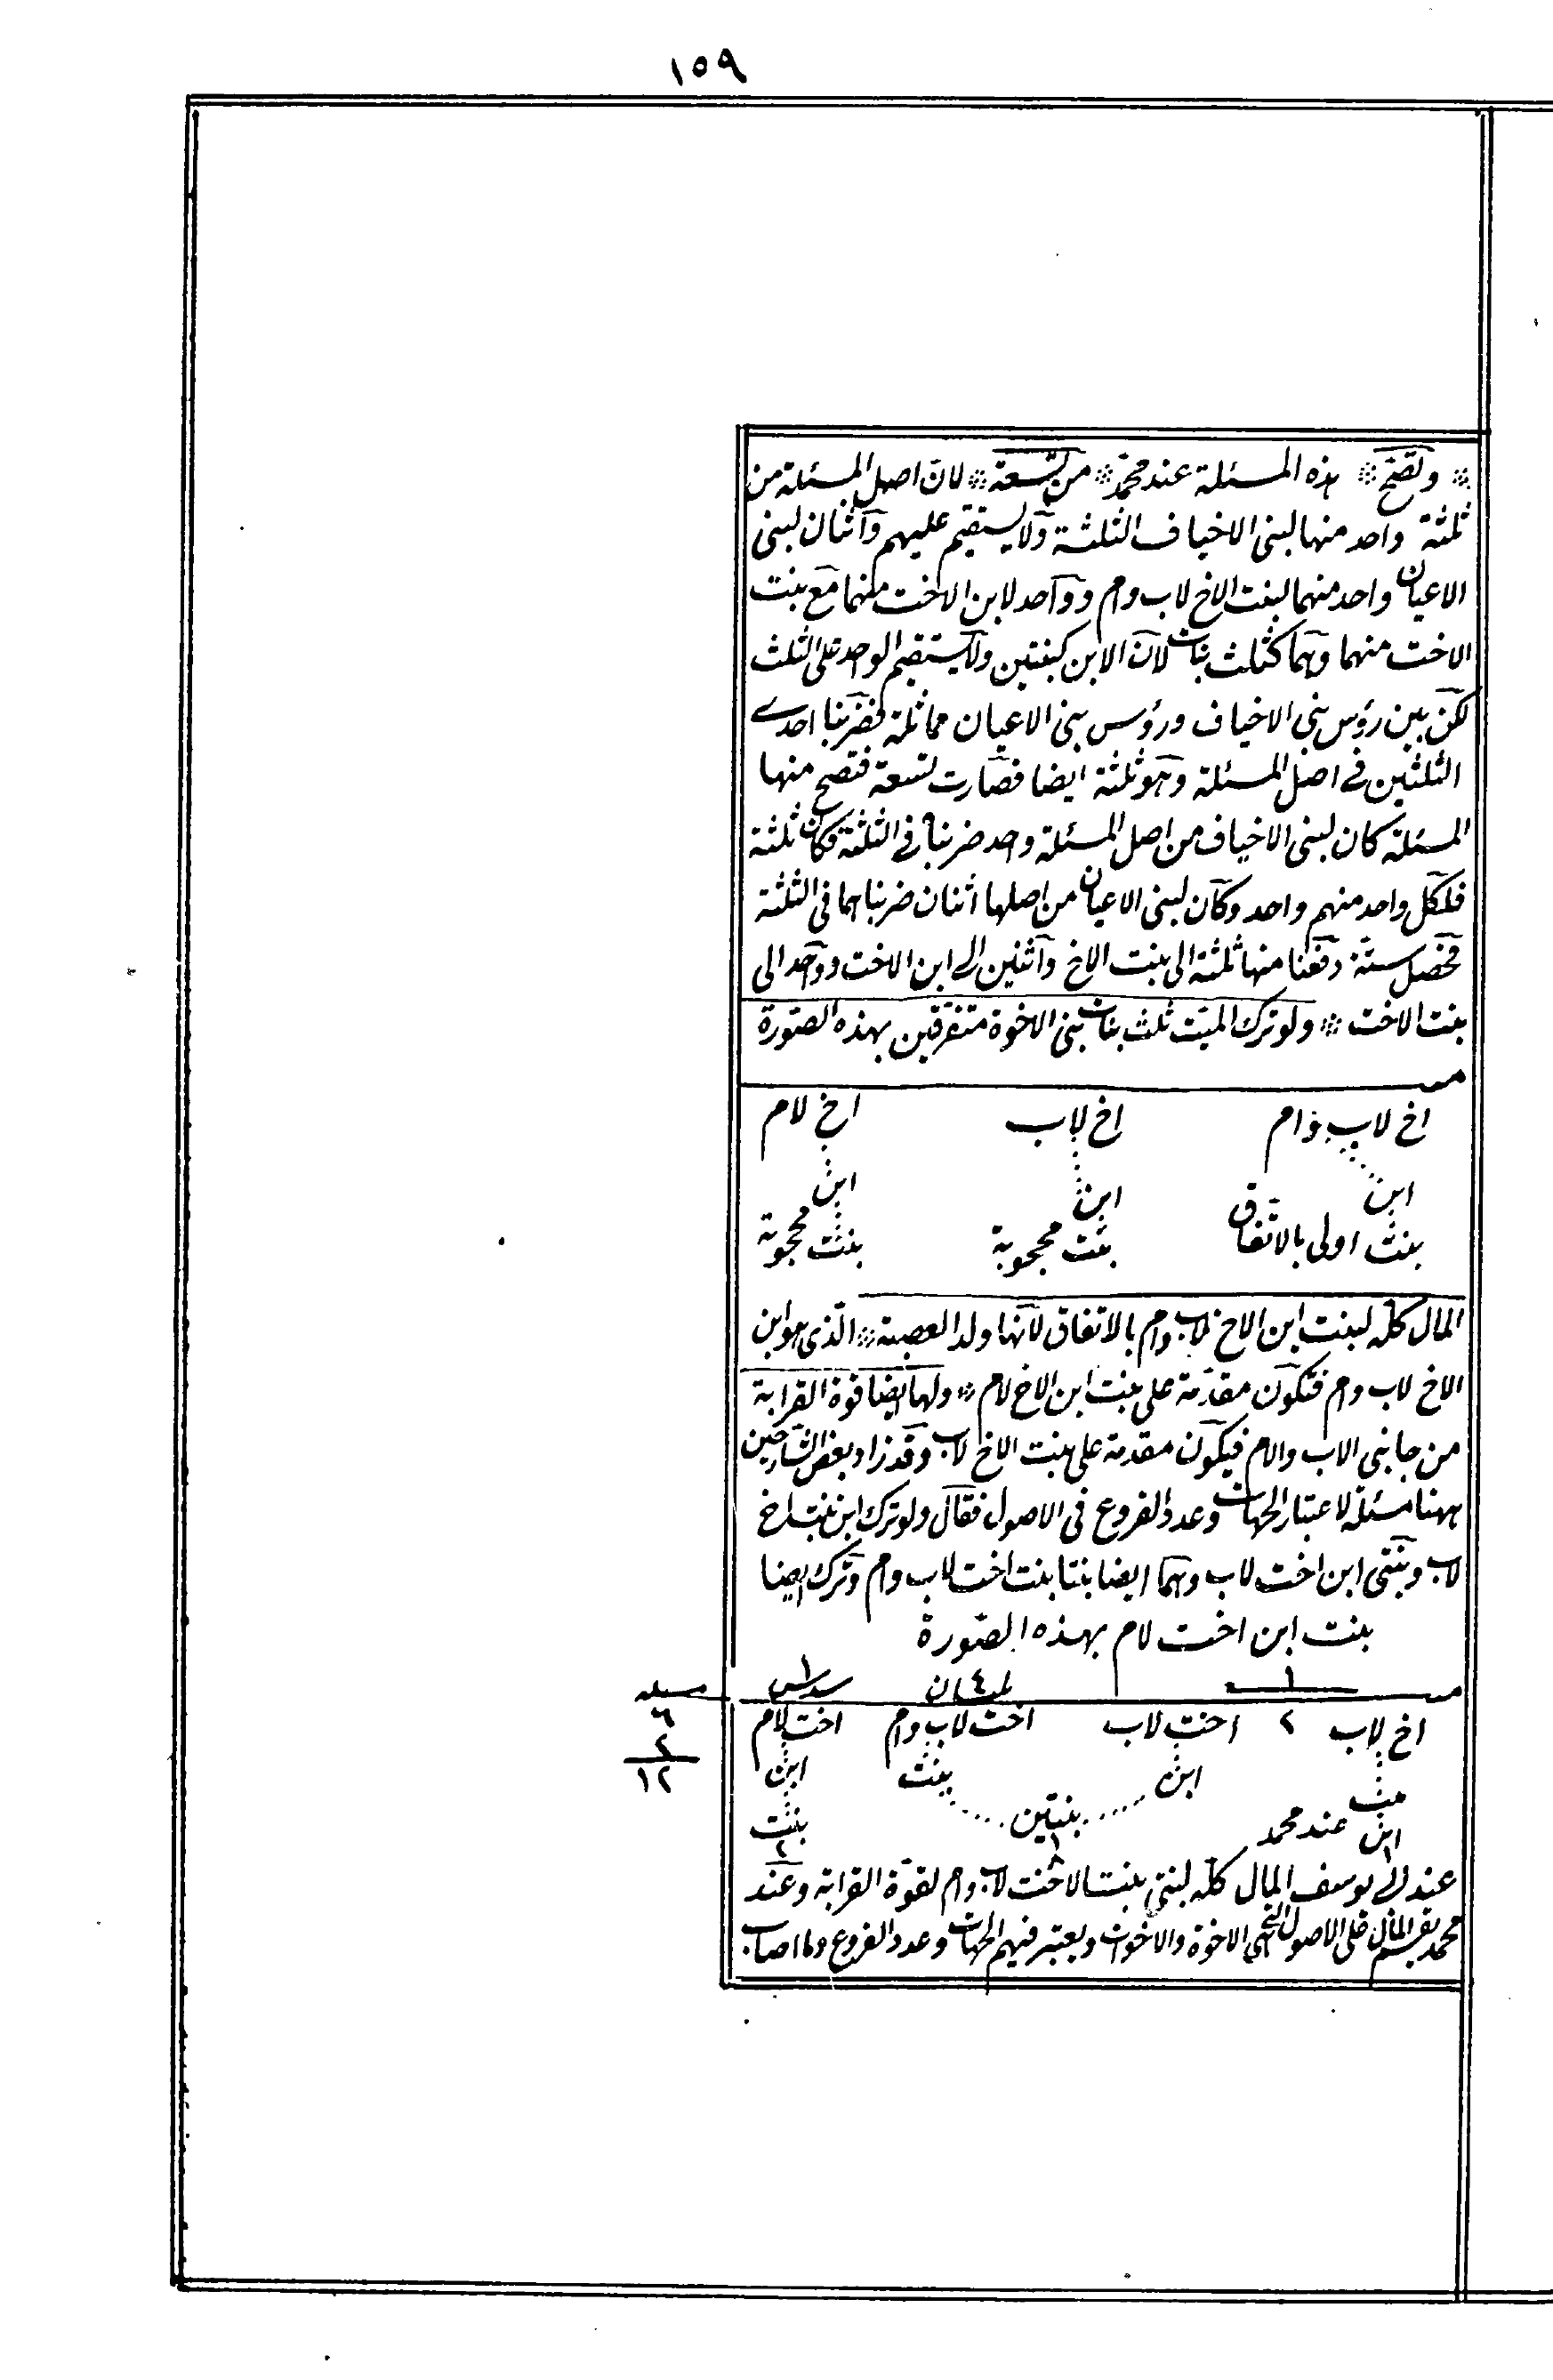 ١٥٩
* وتصح * هذه المسئلة عند محمد * من تسعة * لان اصل المسئلة من
ثلثة واحد منها لبنى الاخياف الثلثة ولا يستقيم عليهم واثنان لبنى
الاعيان واحد منهما لبنت الاخ لاب وام وواحد لابن الاخت منهما مع بنت
الاخت منهما وهما كثلث بنات لان الابن كبنتين ولا يستقيم الواحد على الثلث
لكن بين رؤس بنى الاخياف ورؤس بنى الاعيان مماثلة فضربنا احدى
الثلثين فى اصل المسئلة وهو ثلثة ايضا فصارت تسعة فتصح منها
المسئلة كان لبنى الاخياف من اصل المسئلة واحد ضربناه فى الثلثة فكان ثلثة
فلكل واحد منهم واحد وكان لبنى الاعيان من اصلها اثنان ضربناهما فى الثلثة
فحصل ستة دفعنا منها ثلثة الى بنت الاخ واثنين الى ابن الاخت وواحد الى
بنت الاخت * ولو ترك الميت ثلث بنات بنى الاخوة متفرقين بهذه الصورة
مـ
اخ لاب وام اخ لاب اخ لام
ابن ابن ابن
بنت اولى بالاتفاق بنت محجوبة بنت محجوبة
المال كله لبنت ابن الاخ لاب وام بالاتفاق لانها ولد العصبة * الذى هو ابن
الاخ لاب وام فتكون مقدمة على بنت ابن الاخ لام * ولها ايضا قوة القرابة
من جانبى الاب والام فيكون مقدمة على بنت الاخ لاب وقد زاد بعض الشارحين
ههنا مسئلة لاعتبار الجهات وعدد الفروع فى الاصول فقال ولو ترك ابن بنت اخ
لاب وبنتى ابن اخت لاب وهما ايضا بنتا بنت اخت لاب وام وترك ايضا
بنت ابن اخت لام بهذه الصورة
مـ ١ ٤ ثلثان ١ سدس مسئله
اخ لاب ٢ اخت لاب اخت لاب وام اخت لام ٦
بنت ابن بنت ابن ٢
ابن عند محمد بنتين بنت ١٢
١ ٢
عند ابى يوسف المال كله لبنتى بنت الاخت لاب وام لقوة القرابة وعند
محمد يقسم المال على الاصول التى هى الاخوة والاخوات ويعتبر فيهم الجهات وعدد الفروع وما اصاب